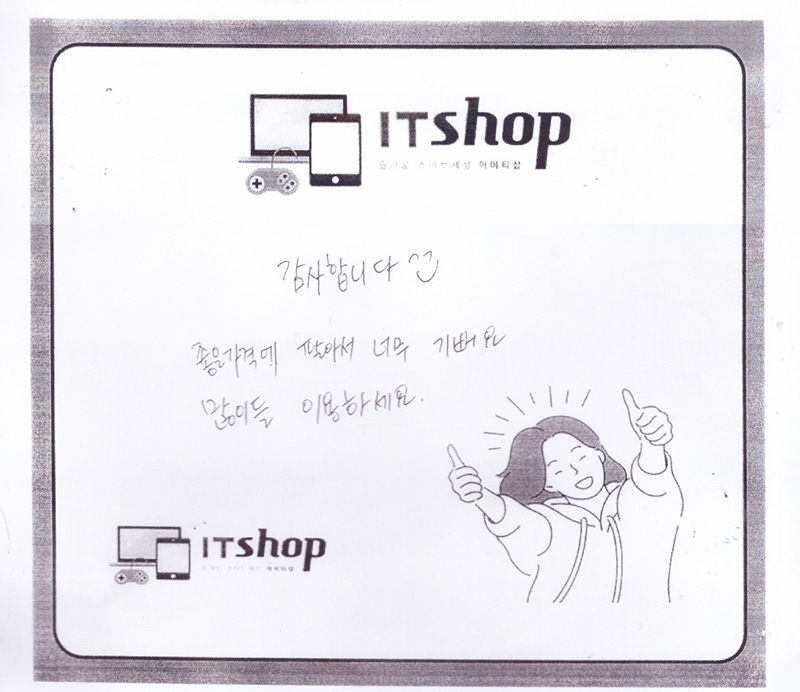 ITshop
즐거운 스마트세상 아이티샵
감사합니다 ^^
좋은가격에 팔아서 너무 기뻐요
많이들 이용하세요.
ITshop
아이티샵